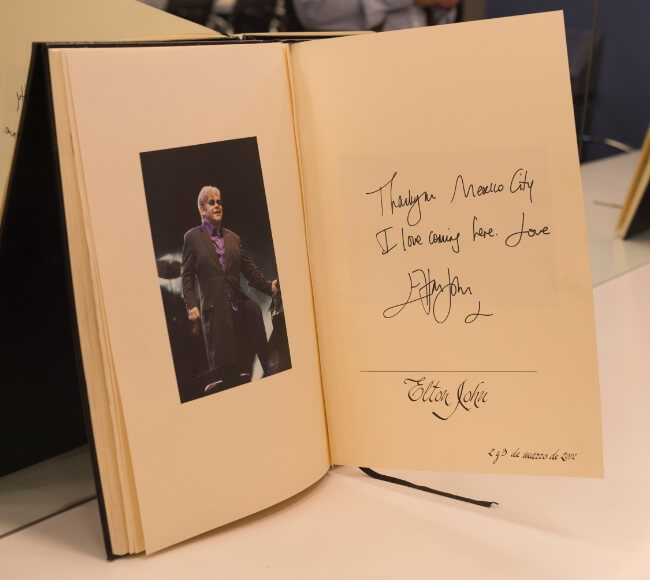 Thankyou Mexico City
I love coming here. Love
Elton John
Elton John
2 y 3 de marzo de 2012